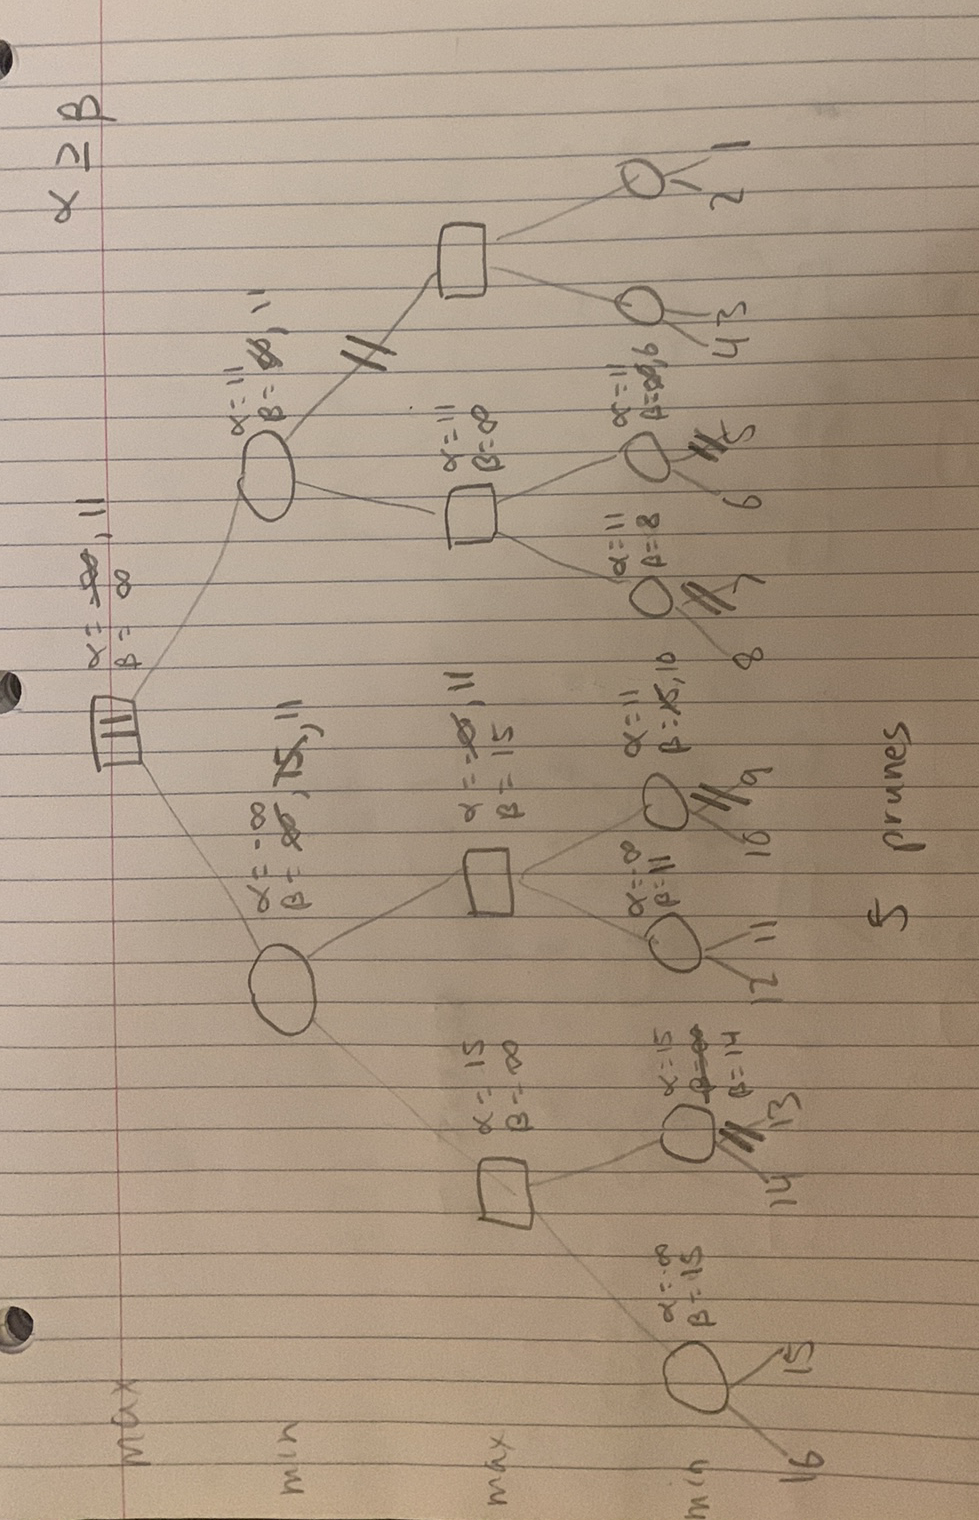 α ≥ β
max
11
α = -∞, 11
β = ∞
min
α = -∞
β = ∞, 15, 11
α = 11
β = ∞, 11
max
α = 15
β = ∞
α = -∞, 11
β = 15
α = 11
β = ∞
min
α = -∞
β = 15
α = 15
β = ∞
β = 14
α = -∞
β = 11
α = 11
β = 15, 10
α = 11
β = 8
α = 11
β = ∞, 6
16 15 14 13 12 11 10 9 8 7 6 5 4 3 2 1
5 prunes